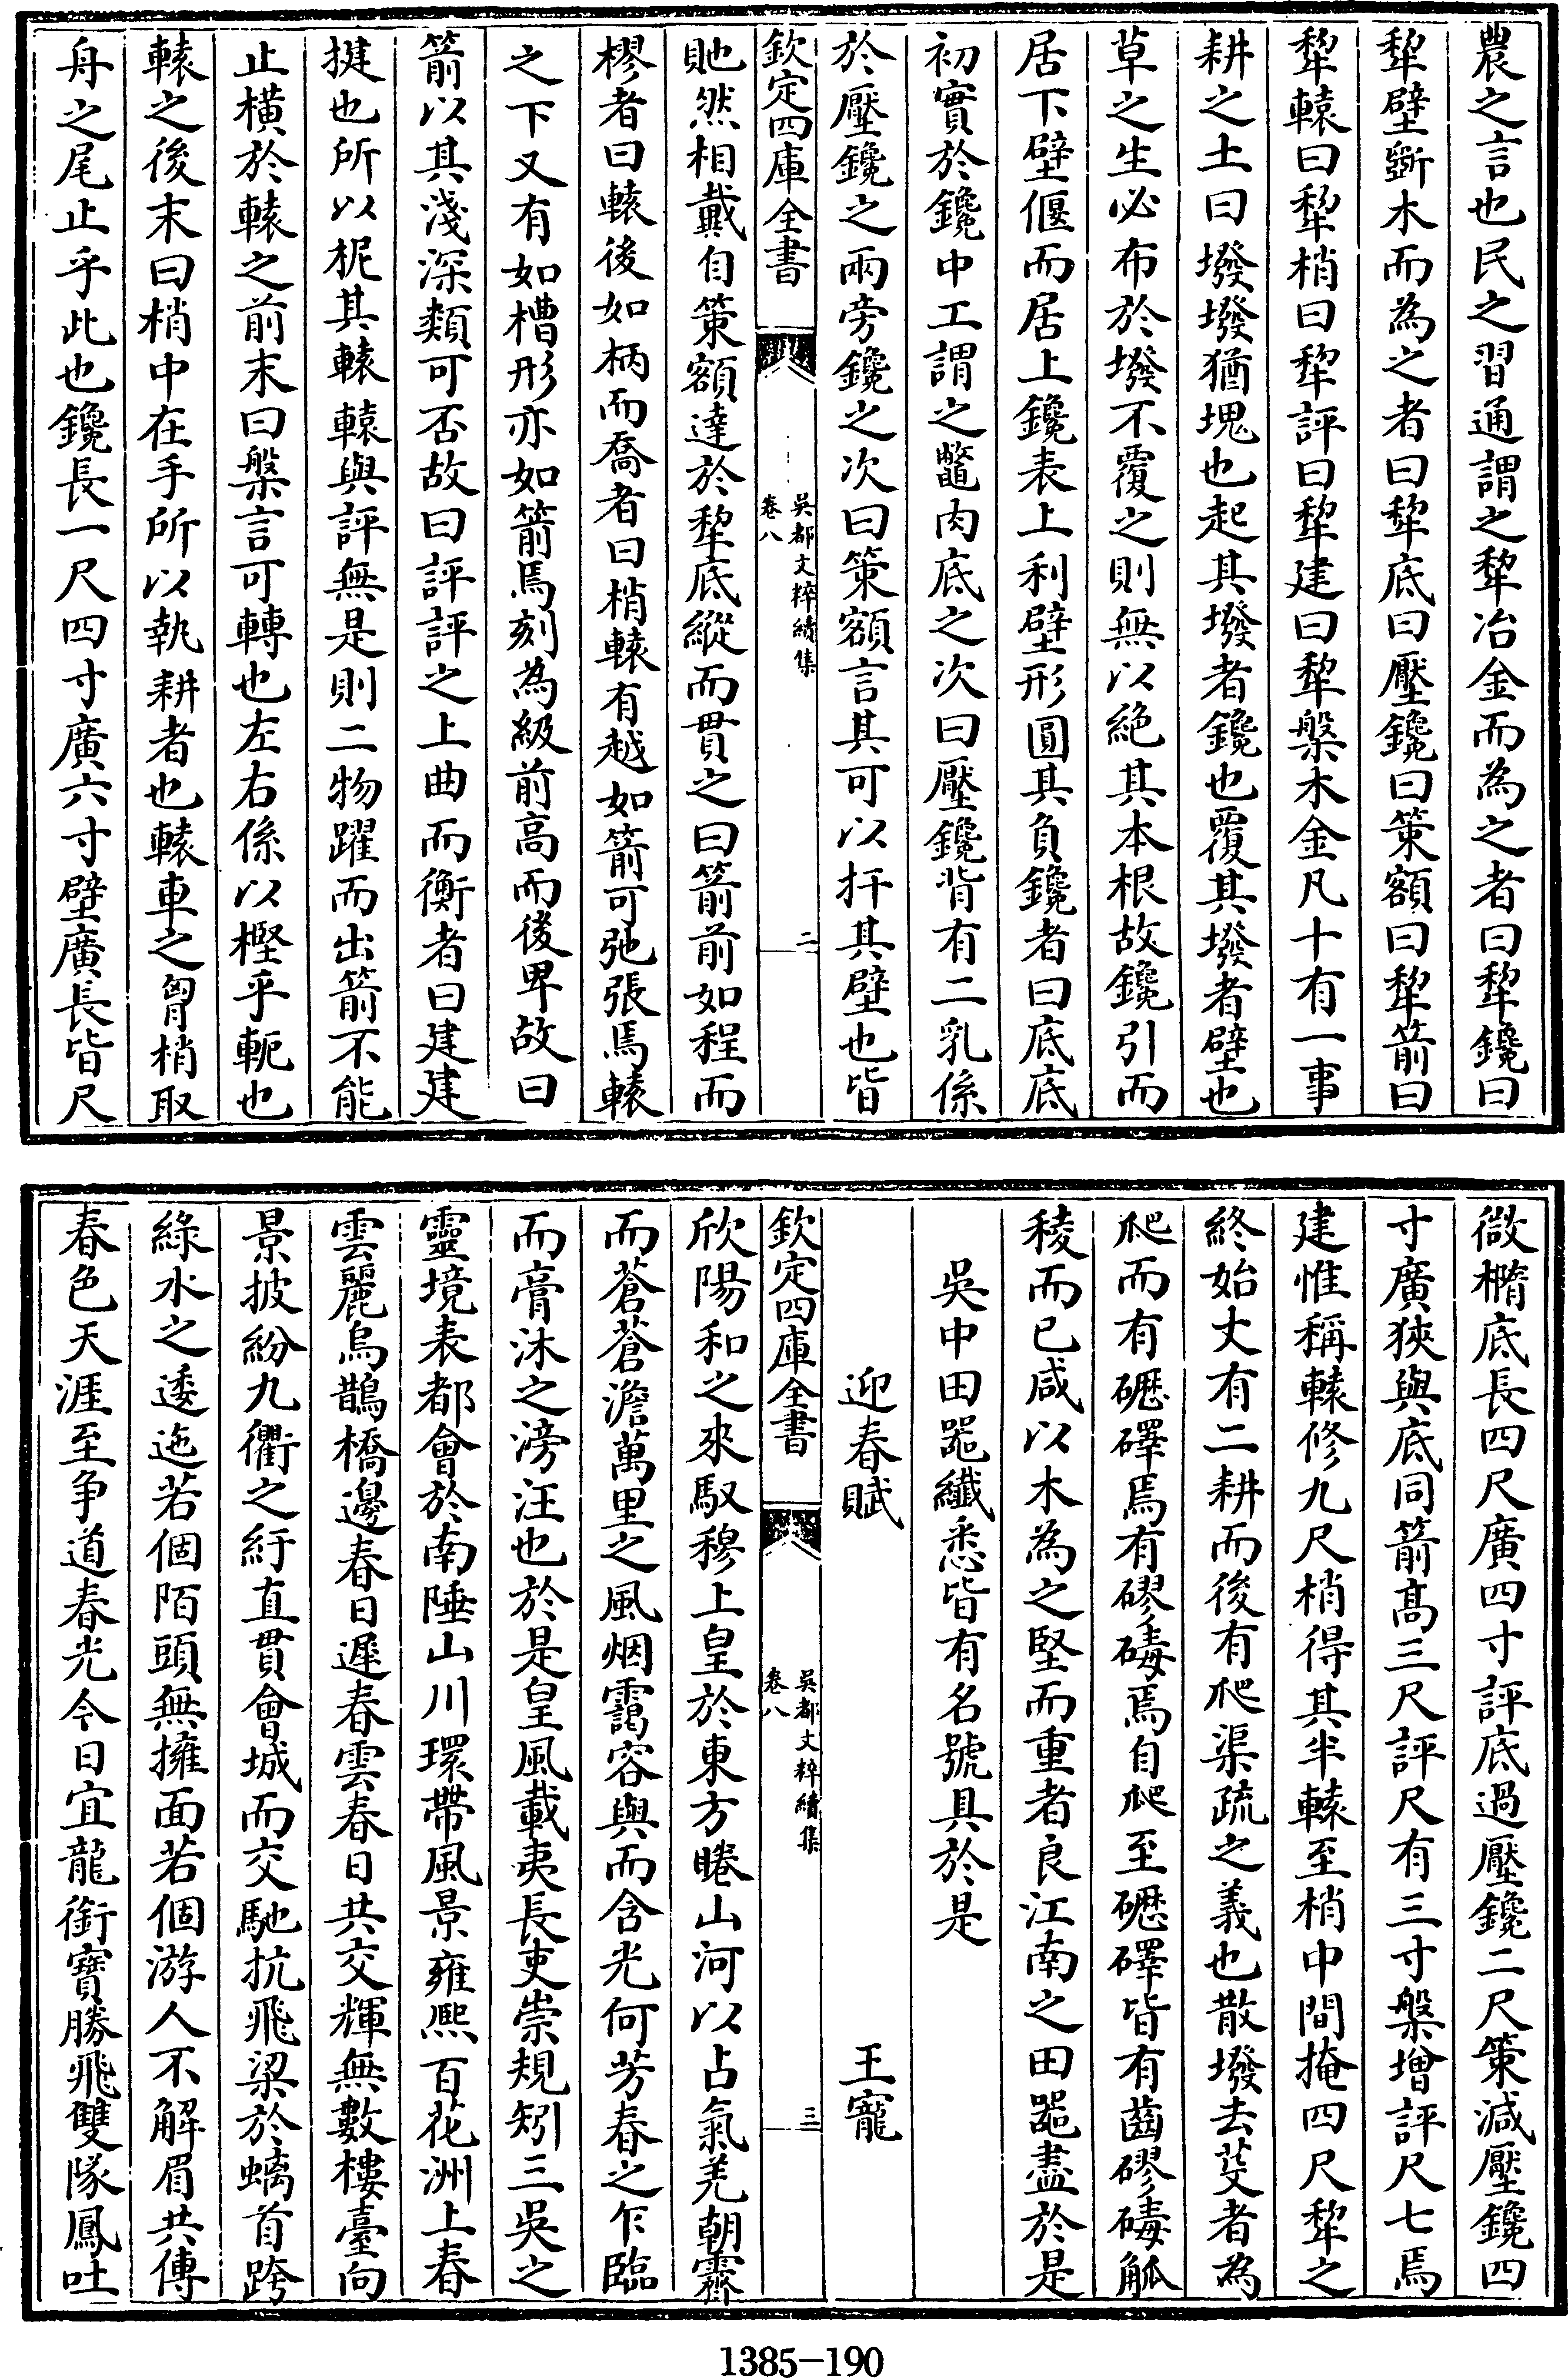 農之言也民之習通謂之犂冶金而為之者曰犂鑱曰
犂壁斲木而為之者曰犂底曰壓鑱曰策額曰犂箭曰
犂轅曰犂梢曰犂評曰犂建曰犂槃木金凡十有一事
耕之土曰墢墢猶塊也起其墢者鑱也覆其墢者壁也
草之生必布於墢不覆之則無以絶其本根故鑱引而
居下壁偃而居上鑱表上利壁形圓其負鑱者曰底底
初實於鑱中工謂之鼈肉底之次曰壓鑱背有二乳係
於壓鑱之兩旁鑱之次曰策額言其可以扞其壁也皆
欽定四庫全書
吳都文粹續集
卷八
二
貤然相戴自策額達於犂底縱而貫之曰箭前如程而
樛者曰轅後如柄而喬者曰梢轅有越如箭可弛張焉轅
之下又有如槽形亦如箭焉刻為級前高而後卑故曰
箭以其淺深類可否故曰評評之上曲而衡者曰建建
揵也所以柅其轅轅與評無是則二物躍而出箭不能
止橫於轅之前末曰槃言可轉也左右係以樫乎軛也
轅之後末曰梢中在手所以執耕者也轅車之胷梢取
舟之尾止乎此也鑱長一尺四寸廣六寸壁廣長皆尺
微橢底長四尺廣四寸評底過壓鑱二尺策減壓鑱四
寸廣狹與底同箭高三尺評尺有三寸槃增評尺七焉
建惟稱轅修九尺梢得其半轅至梢中間掩四尺犂之
終始丈有二耕而後有爬渠疏之義也散墢去芟者為
爬而有礰礋焉有磟碡焉自爬至礰礋皆有齒磟碡觚
稜而已咸以木為之堅而重者良江南之田噐盡於是
吳中田噐纖悉皆有名號具於是
迎春賦
王寵
欽定四庫全書
吳都文粹續集
卷八
三
欣陽和之來馭穆上皇於東方睠山河以占氣羌朝霽
而蒼蒼澹萬里之風烟靄容與而含光何芳春之乍臨
而膏沐之滂汪也於是皇風載夷長吏崇規矧三吳之
靈境表都會於南陲山川環帶風景雍熈百花洲上春
雲麗烏鵲橋邊春日遲春雲春日共交輝無數樓臺向
景披紛九衢之紆直貫會城而交馳抗飛梁於螭首跨
綠水之逶迤若個陌頭無擁面若個游人不解眉共傳
春色天涯至争道春光今日宜龍銜寶勝飛雙隊鳳吐
1385-190